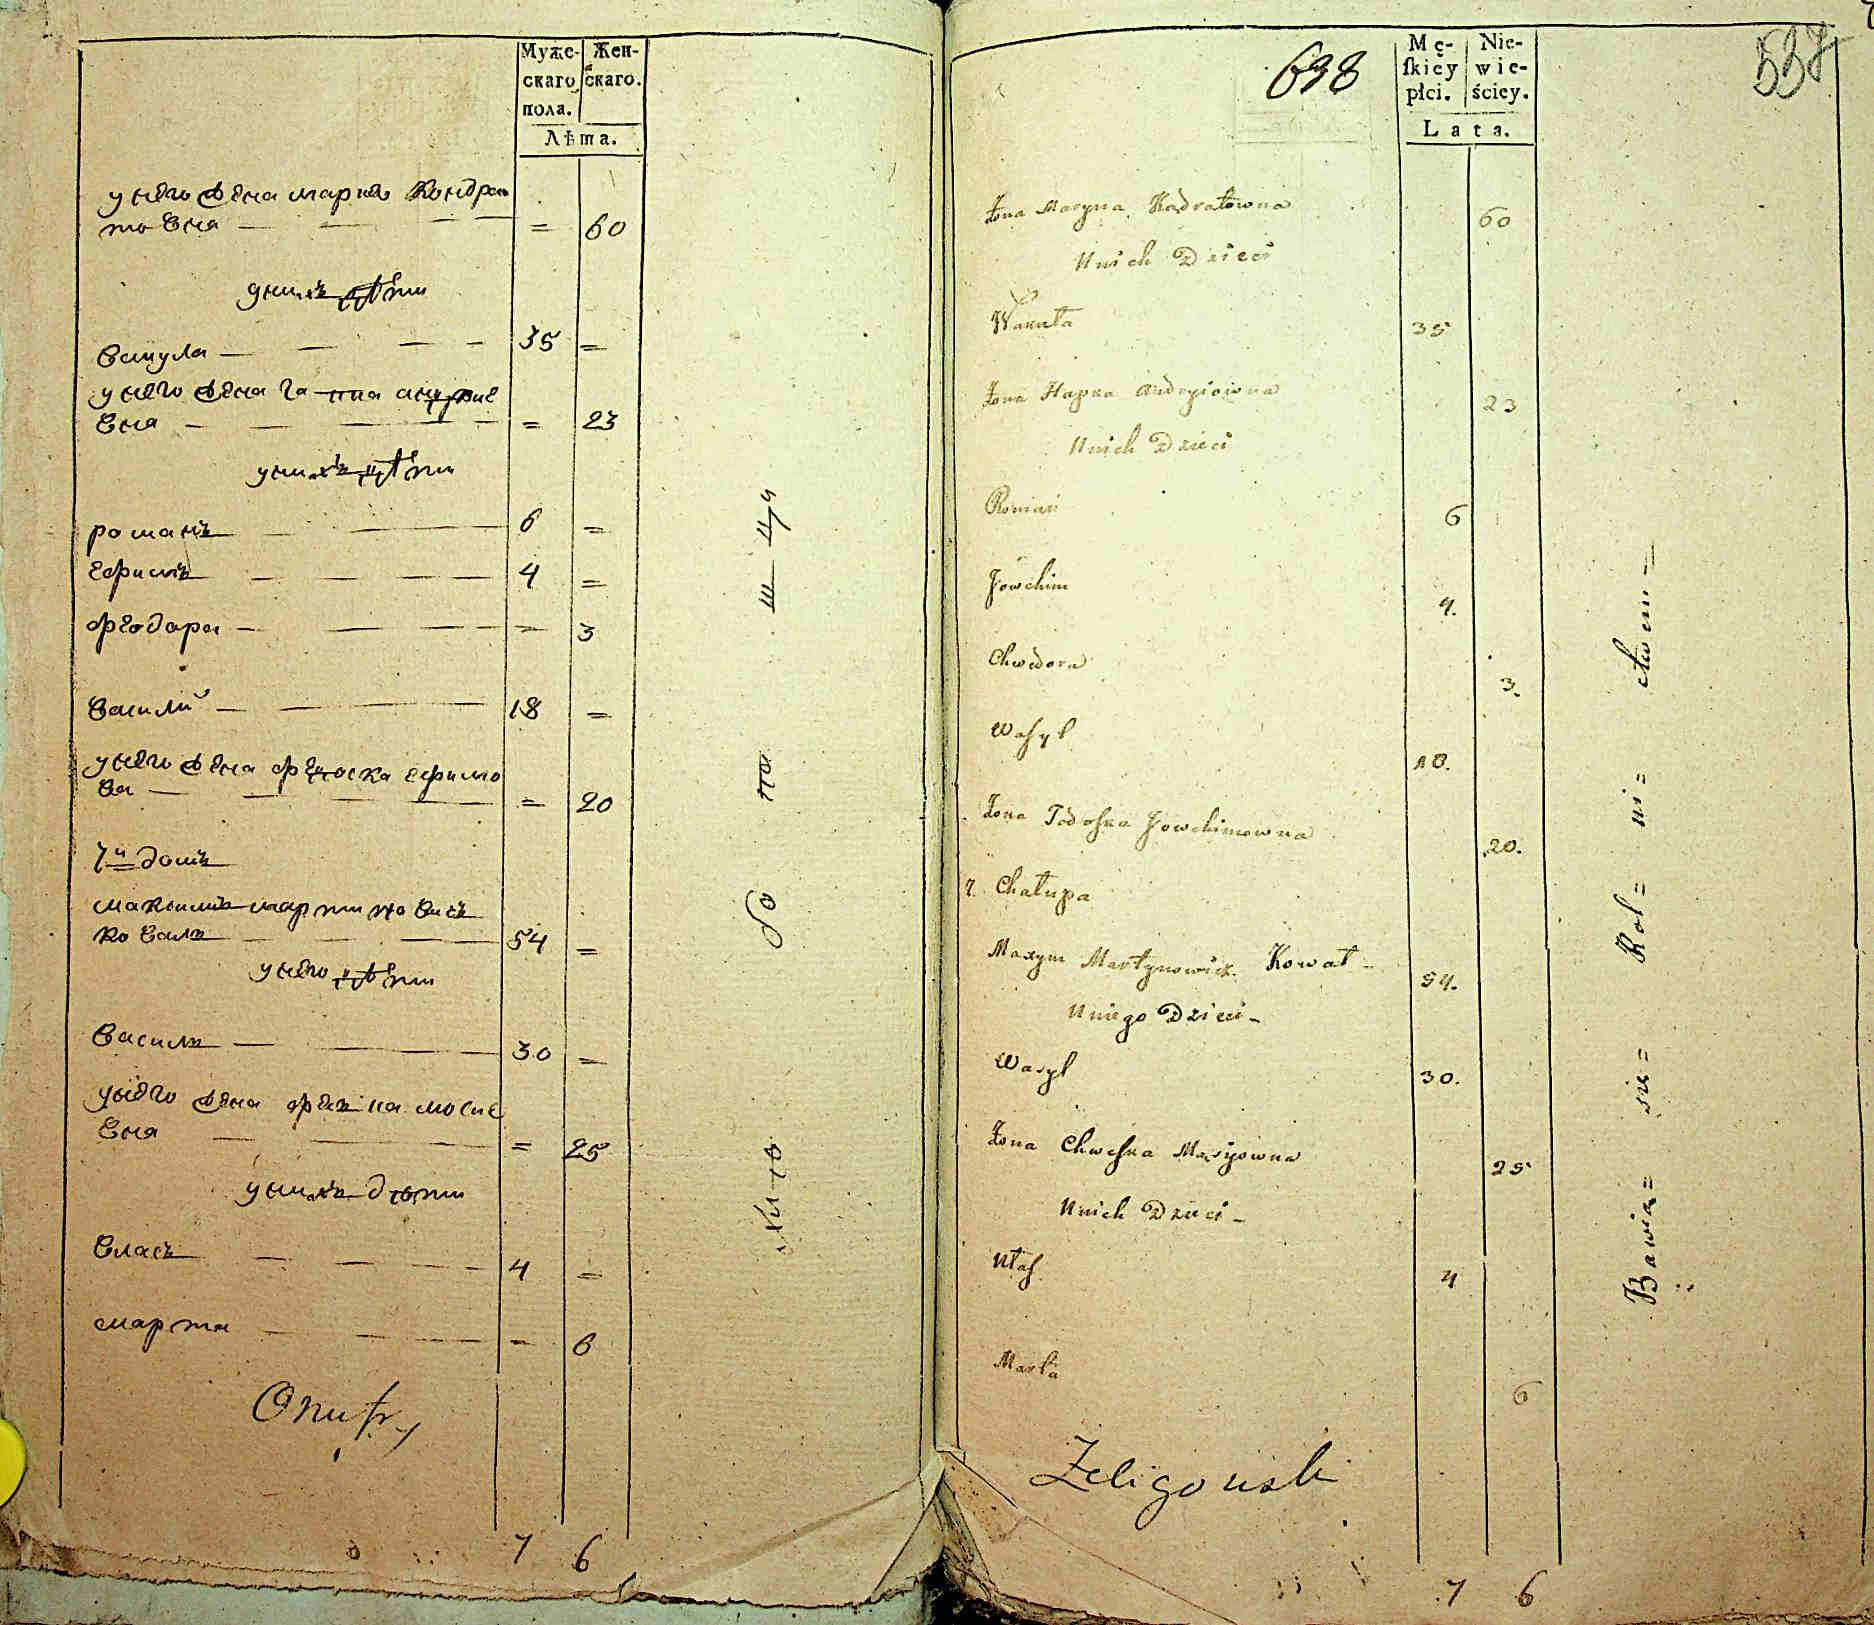 Муже-
скаго
пола.
Жен-
скаго.
Лѣта.
у него жена марья кондра
това — = 60
у нихъ дѣти
Вакула — 35 =
у него жена гапка андрие
вна — = 23
у нихъ дѣти
романъ — 6 =
ефимъ — 4 =
феодора — = 3
Василий — 18 =
у него жена федоска ефимо
ва — = 20
7й домъ
максимъ мартиновичъ
коваль — 54 =
у него дѣти
Василь — 30 =
у него жена феска мосие
вна — = 25
у нихъ дѣти
власъ — 4 =
марта — = 6
Onufry
7 6
638
537
Mę-
ſkiey
płci.
Nie-
wie-
ściey.
Lata.
Żona Maryna Kądratowna 60
U nich Dzieci
Wakuła 35
Żona Hapka Andryiowna 23
U nich Dzieci
Roman 6
Jowchim 4.
Chwedora 3.
Waſyl 18.
Żona Todoſka Jowchimowna 20.
7. Chałupa
Maxym Martynowicz Kował - 54.
U niego Dzieci -
Wasyl 30.
Żona Chweſka Mosijowna 25
U nich Dzieci -
Ułaſ 4
Marta 6
Żeligowski
7 6